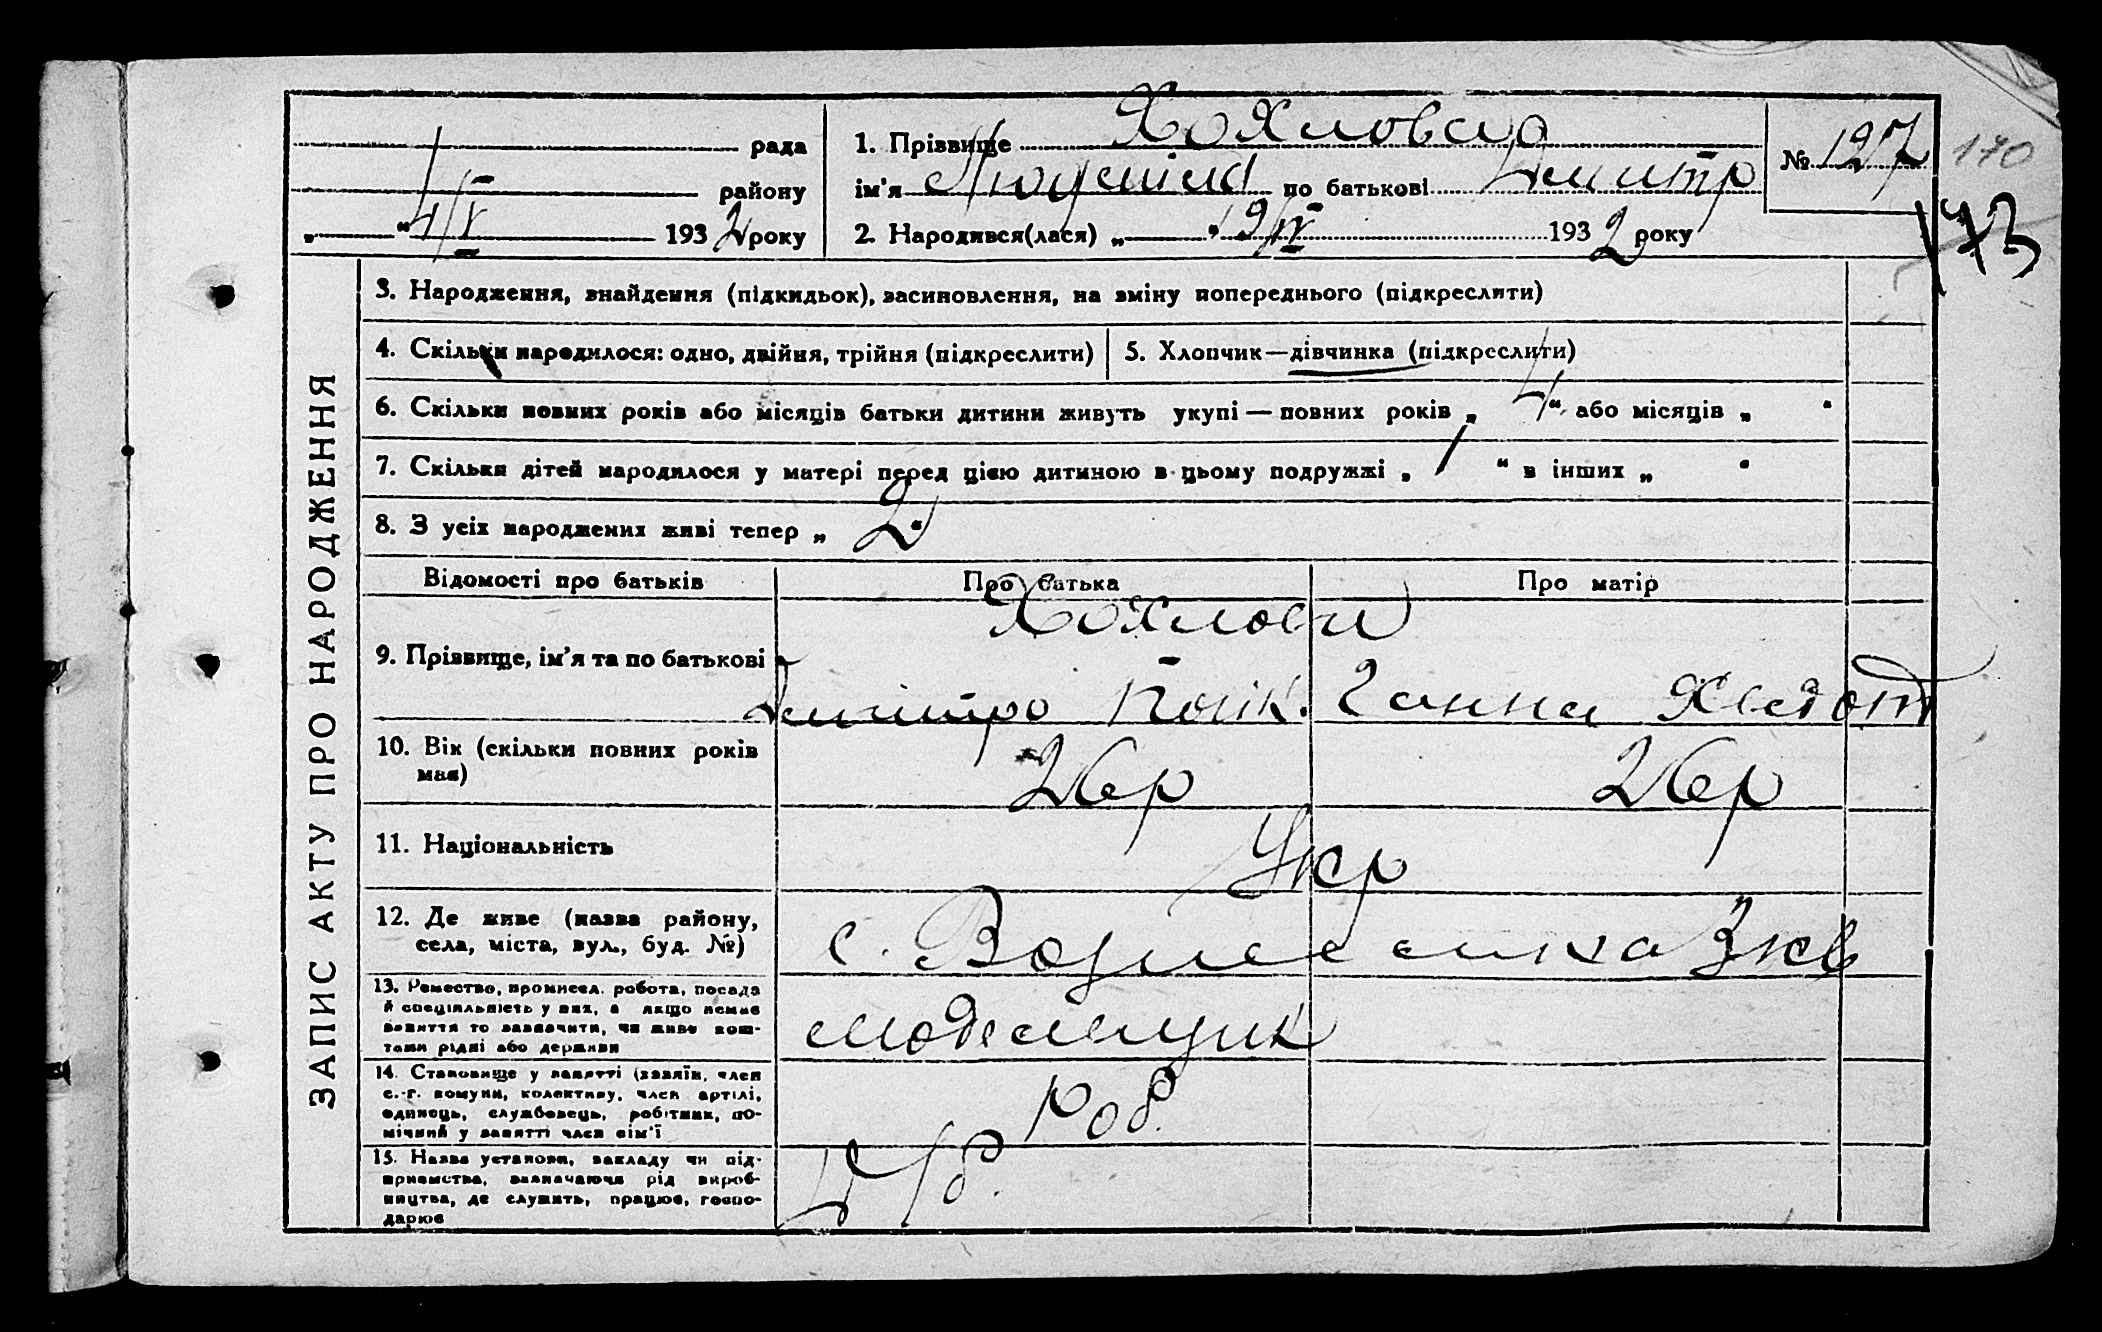 рада
району
4/V 1932 року
1. Прізвище Хохлова
ім'я Людміла по батькові Дмитр
2. Народився(лася) „ “ 19/IV 1932 року
№ 127
170
173
ЗАПИС АКТУ ПРО НАРОДЖЕННЯ
3. Народження, знайдення (підкидьок), засиновлення, на зміну попереднього (підкреслити)
4. Скільки народилося: одно, двійня, трійня (підкреслити)
5. Хлопчик—дівчинка (підкреслити)
6. Скільки повних років або місяців батьки дитини живуть укупі — повних років „ 4 “ або місяців „ “
7. Скільки дітей народилося у матері перед цією дитиною в цьому подружжі „ 1 “ в інших „ “
8. З усіх народжених живі тепер „ 2 “
Відомості про батьків
Про батька
Про матір
9. Прізвище, ім'я та по батькові
Хохлови
Дмитро
Ганна Хведот
10. Вік (скільки повних років має)
26 р
26 р
11. Національність
Укр
12. Де живе (назва району,
села, міста, вул., буд. №)
с. Вознесенка
13. Ремество, промисел. робота, посада
й спеціяльність у них, а якщо немає
заняття то зазначити, чи живе кош-
тами рідні або держави
модельщик
14. Становище у занятті (хазяїн, член
с.-г. комуни, колективу, член артілі,
одинець, службовець, робітник, по-
мічний у занятті член сім'ї
роб.
15. Назва установи, закладу чи під-
приємства, зазначаючи рід вироб-
ництва, де служить, працює, госпо-
дарює